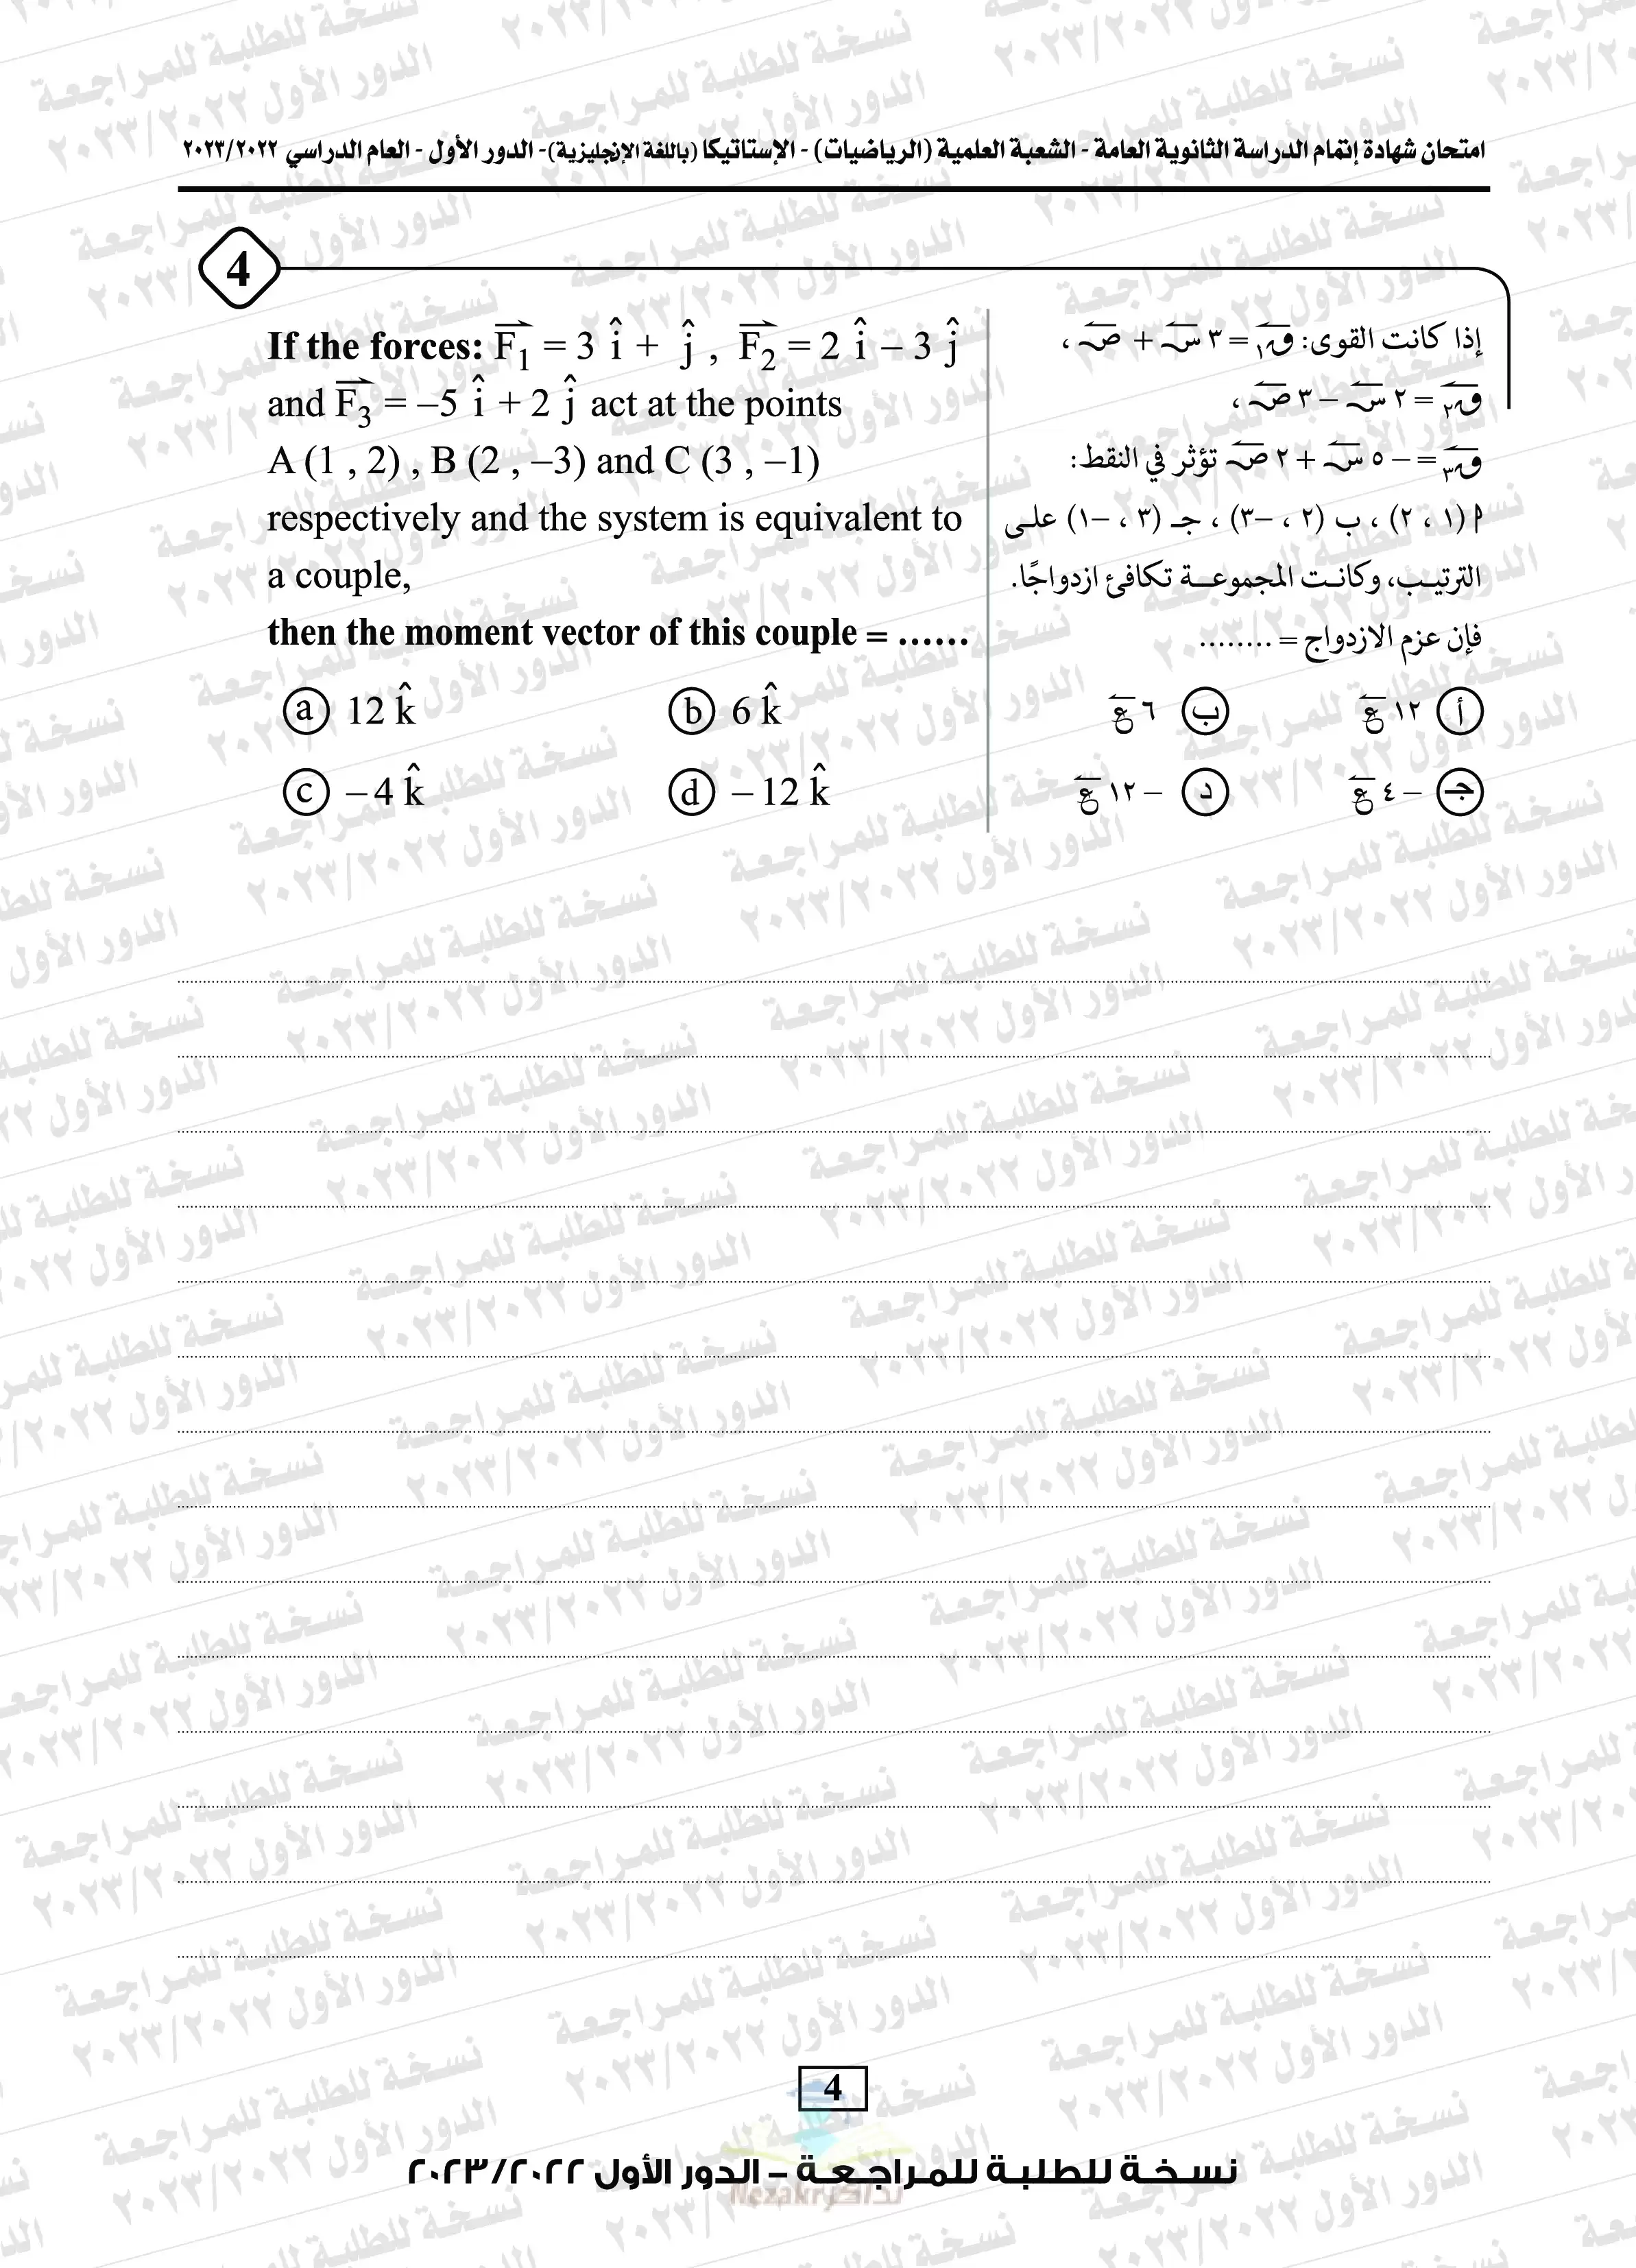 امتحان شهادة إتمام الدراسة الثانوية العامة - الشعبة العلمية (الرياضيات) - الإستاتيكا (باللغة الإنجليزية)- الدور الأول - العام الدراسي ٢٠٢٣/٢٠٢٢
4
If the forces: F₁ = 3 î + ĵ , F₂ = 2 î – 3 ĵ
and F₃ = –5 î + 2 ĵ act at the points
A (1 , 2) , B (2 , –3) and C (3 , –1)
respectively and the system is equivalent to
a couple,
then the moment vector of this couple = ......
a 12 k̂
b 6 k̂
c – 4 k̂
d – 12 k̂
إذا كانت القوى: ق١ = ٣ س + ص ،
ق٢ = ٢ س – ٣ ص ،
ق٣ = – ٥ س + ٢ ص تؤثر في النقط:
أ (١ ، ٢) ، ب (٢ ، –٣) ، جـ (٣ ، –١) على
الترتيب، وكانت المجموعة تكافئ ازدواجًا.
فإن عزم الازدواج = ........
أ ١٢ ع
ب ٦ ع
جـ – ٤ ع
د – ١٢ ع
4
نسخة للطلبة للمراجعة – الدور الأول ٢٠٢٣/٢٠٢٢
نذاكر Nezakr